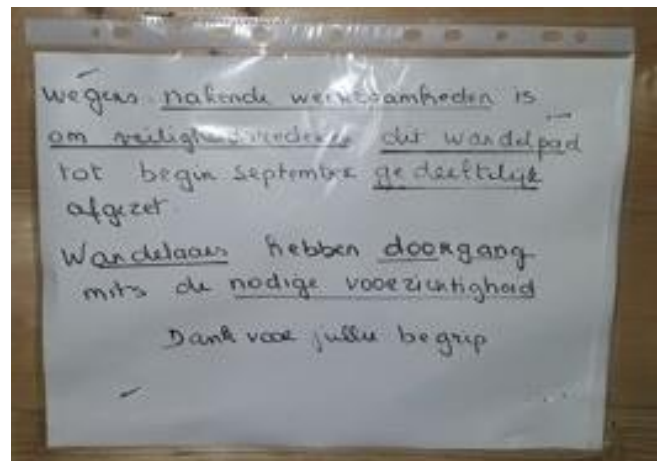 wegens nakende werkzaamheden is
om veiligheidsredenen dit wandelpad
tot begin september gedeeltelijk
afgezet
Wandelaars hebben doorgang
mits de nodige voorzichtigheid
Dank voor jullie begrip